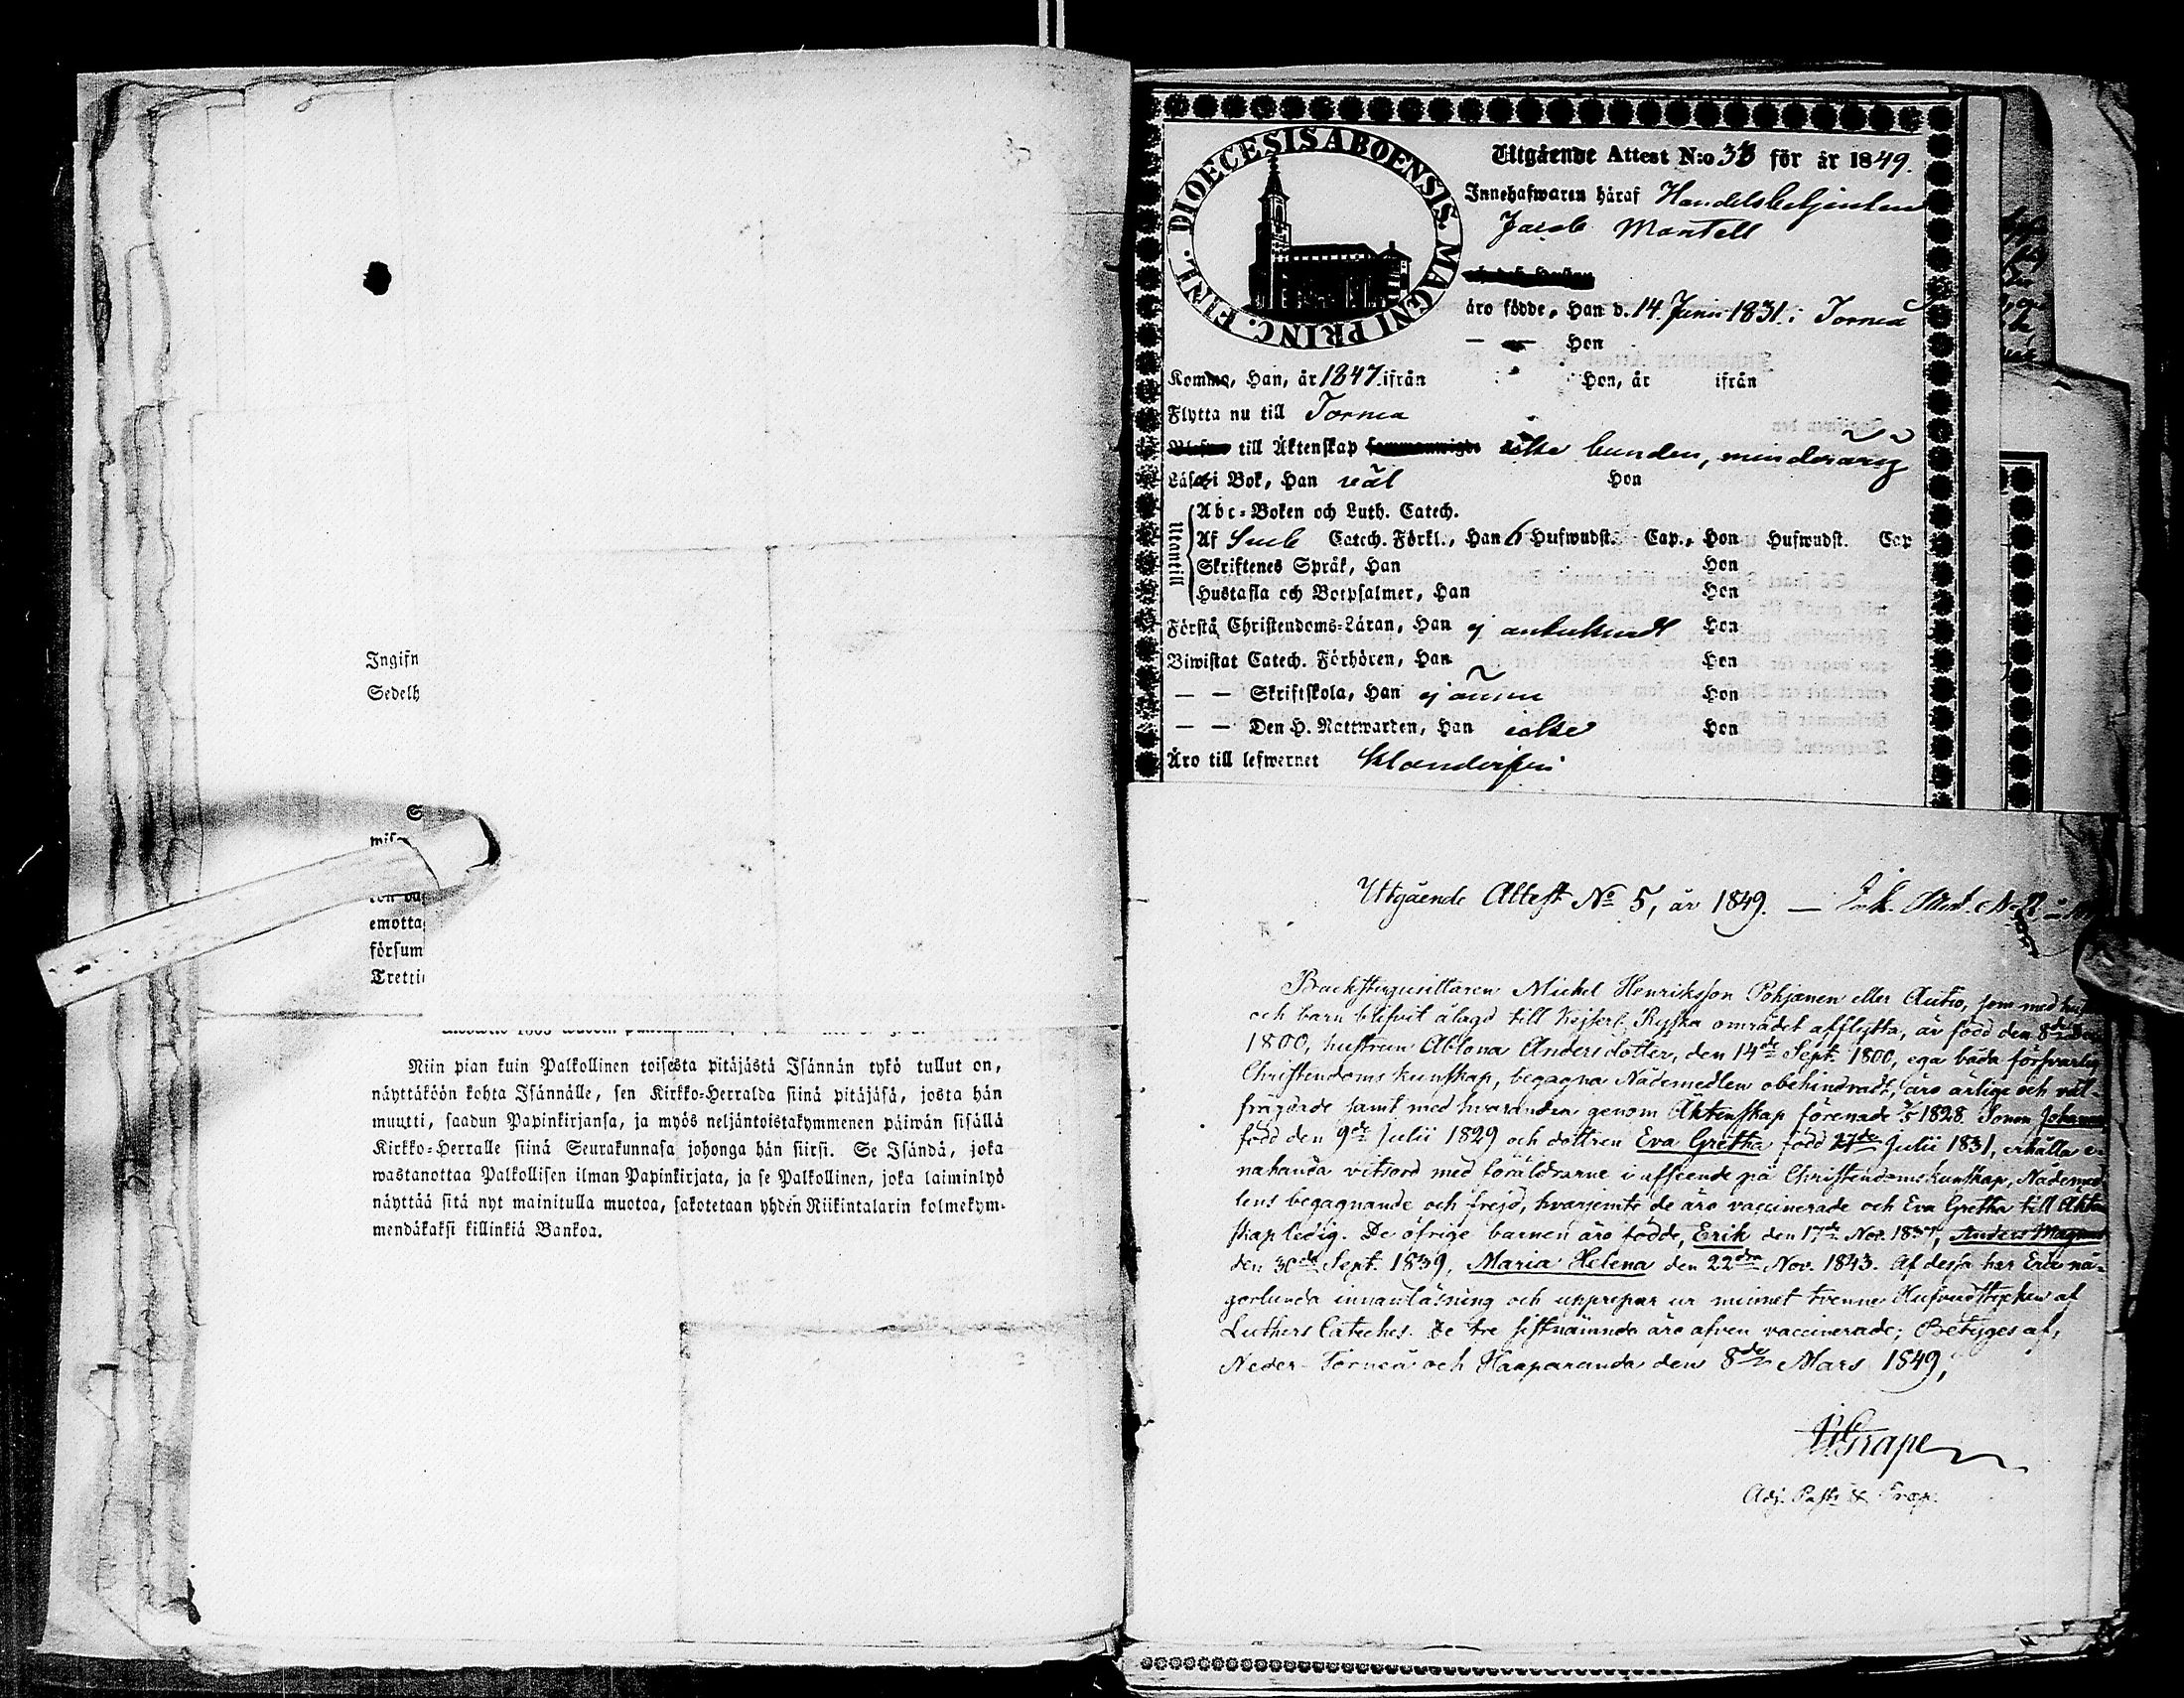 Ingifn
Sedelh
S
emotta
försum
Tretti
Niin pian kuin Palkollinen toisesta pitäjästä Isännän tykö tullut on,
näyttäköön kohta Isännälle, sen Kirkko-Herralda siinä pitäjäsä, josta hän
muutti, saadun Papinkirjansa, ja myös neljäntoistakymmenen päiwän sisällä
Kirkko-Herralle siinä Seurakunnasa johonga hän siirsi. Se Isändä, joka
wastanottaa Palkollisen ilman Papinkirjata, ja se Palkollinen, joka laiminlyö
näyttää sitä nyt mainitulla muotoa, sakotetaan yhden Riikintalarin kolmekym-
mendäkaksi killinkiä Bankoa.
DIOECESIS ABOENSIS. MAGNI PRINC. FINL.
Utgående Attest N:o för år 1849.
Innehafwaren häraf Handelsbetjenten
Jacob Mantell
äro födde, Han d. 14. Junii 1831. i Torneå
— — Hon
Komme, Han, år 1847. ifrån Hon, år ifrån
Flytta nu till Torneå
till Äktenskap icke bunden, minderårig
Läsa i Bok, Han väl Hon
Utantill
Abc-Boken och Luth. Catech.
Af Sueb Catech. Förkl., Han 6 Hufwudst. Cap., Hon Hufwudst. Cap
Skriftenes Språk, Han Hon
Hustafla och Botpsalmer, Han Hon
Förstå Christendoms-Läran, Han ej Hon
Biwistat Catech. Förhören, Han Hon
— — Skriftskola, Han ej ännu Hon
— — Den H. Nattwarden, Han icke Hon
Äro till lefwernet klanderfri
Utgående Attest No 5, år 1849. —
Backstugusittaren Michel Henriksson Pohjanen eller Autio, som med
och barn blifvit ålagd till Kejserl. Ryska området afflytta, är född den 8de
1800, hustrun Ablona Andersdotter, den 14de Sept. 1800, ega båda försvarlig
Christendoms kunskap, begagna Nådemedlen obehindradt, äro ärlige och väl-
frägdade samt med hvarandra genom Äktenskap förenade 1828. Sonen Johannes
född den 9de Julii 1829 och dottren Eva Gretha född 27de Julii 1831, erhålla e-
nahanda vitsord med föräldrarne i afseende på Christendomskunskap, Nådemed-
lens begagnande och frejd, hvarjemte de äro vaccinerade och Eva Gretha till Äkten-
skap ledig. De öfrige barnen äro födde, Erik den 17de Nov. 1834, Anders Magnus
den 30de Sept. 1839, Maria Helena den 22dra Nov. 1843. Af dessa har Erik nå-
gorlunda innanläsning och upprepar ur minnet trenne Hufvudstycken af
Luthers Cateches. De tre sistnämnda äro äfven vaccinerade; Betyges af,
Neder-Torneå och Haaparanda den 8de Mars 1849,
Grape
Adj. Past. &